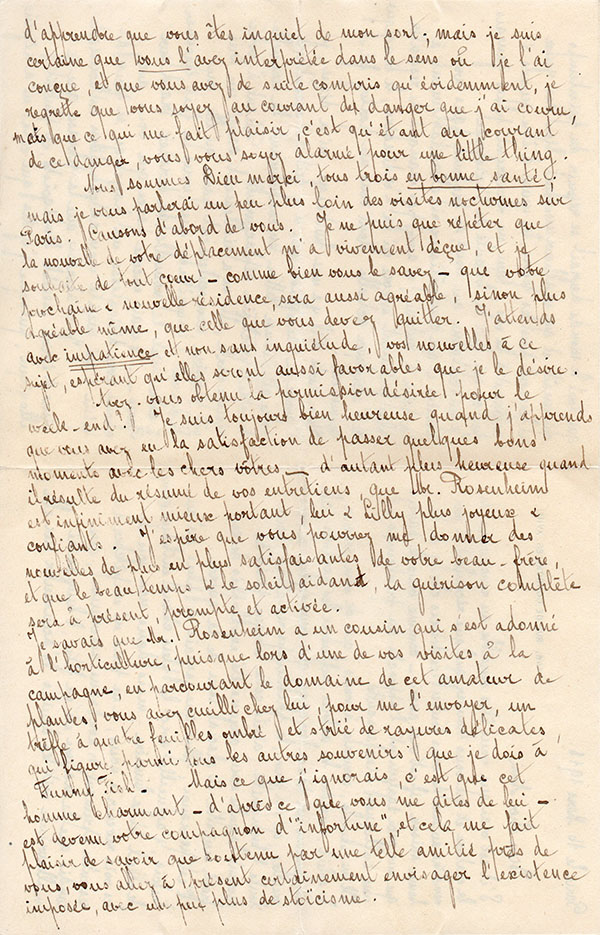 d'apprendre que vous êtes inquiet de mon sort; mais je suis
certaine que vous l'avez interprétée dans le sens où je l'ai
conçue, et que vous avez de suite compris qu'évidemment, je
regrette que vous soyez au courant du danger que j'ai couru,
mais que ce qui me fait plaisir, c'est qu'étant au courant
de ce danger, vous vous soyez alarmé pour une little thing.
Nous sommes Dieu merci, tous trois en bonne santé.
mais je vous parlerai un peu plus loin des visites nocturnes sur
Paris. Causons d'abord de vous. Je ne puis que répéter que
la nouvelle de votre déplacement m'a vivement déçue, et je
souhaite de tout coeur – comme bien vous le savez – que votre
prochaine & nouvelle résidence, sera aussi agréable, sinon plus
agréable même, que celle que vous devez quitter. J'attends
avec impatience et non sans inquiétude, vos nouvelles à ce
sujet, espérant qu'elles seront aussi favorables que je le désire.
Avez-vous obtenu la permission désirée pour le
week-end? Je suis toujours bien heureuse quand j'apprends
que vous avez eu la satisfaction de passer quelques bons
moments avec les chers vôtres – d'autant plus heureuse quand
il résulte du résumé de vos entretiens, que Mr. Rosenheim
est infiniment mieux portant, lui & Lilly plus joyeux &
confiants. J'espère que vous pourrez me donner des
nouvelles de plus en plus satisfaisantes de votre beau-frère,
et que le beau temps & le soleil aidant, la guérison complète
sera à présent, prompte et activée.
Je savais que Mr. Rosenheim a un cousin qui s'est adonné
à l'horticulture, puisque lors d'une de vos visites à la
campagne, en parcourant le domaine de cet amateur de
plantes, vous avez cueilli chez lui, pour me l'envoyer, un
trèfle à quatre feuilles ombré et strié de rayures délicates,
qui figure parmi tous les autres souvenirs que je dois à
Funny Fish. Mais ce que j'ignorais, c'est que cet
homme charmant – d'après ce que vous me dites de lui –
est devenu votre compagnon d'"infortune", et cela me fait
plaisir de savoir que soutenu par une telle amitié près de
vous, vous allez à présent certainement envisager l'existence
imposée, avec un peu plus de stoïcisme.